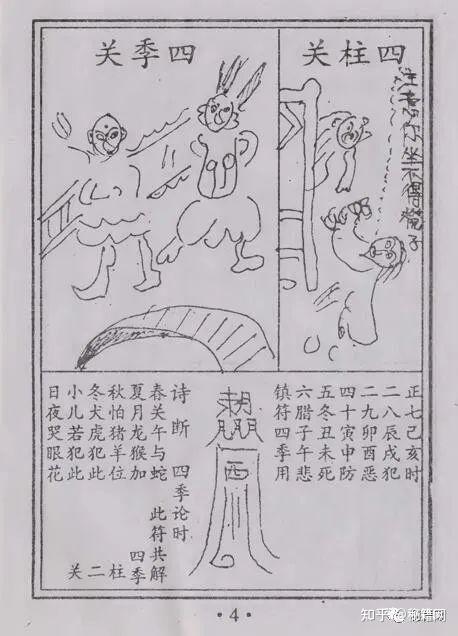 四柱关
坐不得凳子
四季关
正七己亥时
二八辰戌犯
二九卯酉恶
四十寅申防
五冬丑未死
六腊子午悲
镇符四季用
西
诗断 四季论时
春关午与蛇 此符共解
夏月龙猴加 四季
秋怕猪羊位 柱
冬犬虎犯此 二
小儿若犯此 关
日夜哭眼花
·4·
知乎 @秘籍网